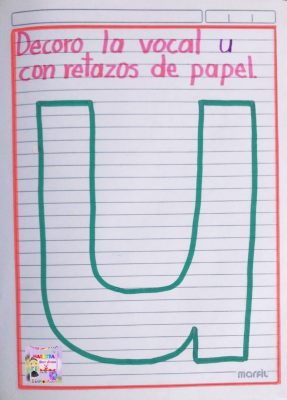 Decoro la vocal u
con retazos de papel
u
marfil